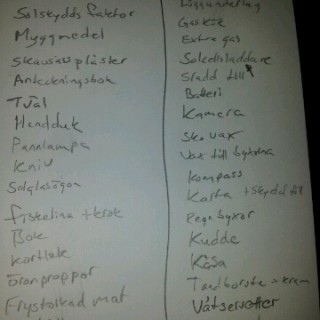 Solskydds faktor
Myggmedel
Skavsårsplåster
Anteckningsbok
Tvål
Handduk
Pannlampa
Kniv
Solglasögon
fiskelina + krok
Bok
Kortlek
öronproppar
Frystorkad mat
Liggunderlag
Gaskök
Extra gas
Solcellsladdare
Sladd till
Batteri
Kamera
Skovax
Vax till byxorna
Kompass
Karta + skydd till
Regnbyxor
Kudde
Kåsa
Tandborste + kräm
Våtservetter